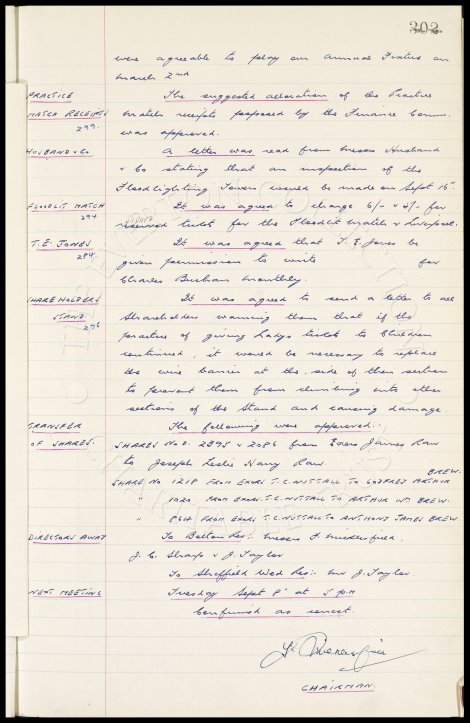 302
were agreeable to play an annual Fixture on
March 2nd
PRACTICE The suggested allocation of the Practice
MATCH RECEIPTS Match receipts proposed by the Finance Comm.
299. was approved.
HUSBAND & Co A letter was read from Messrs Husband
& Co stating that an inspection of the
Floodlighting Towers would be made on Sept 15
FLOODLIT MATCH It was agreed to charge 6/- & 4/- for
294 STAND
reserved tickets for the Floodlit Match v Liverpool.
T.E. JONES It was agreed that T. E. Jones be
284. given permission to write for
Charles Buchan Monthly.
SHAREHOLDERS It was agreed to send a letter to all
STAND. Shareholders warning them that if the
276 practice of giving Ladys tickets to Children
continued, it would be necessary to replace
the wire barrier at the side of their section
to prevent them from climbing into other
sections of the Stand and causing damage.
TRANSFER The following were approved:-
OF SHARES. SHARES NOS. 2895 & 2086 from Exors James Raw
to Joseph Leslie Harry Raw.
SHARE NO 1218 FROM EXORS T.C. NUTTALL TO GODFREY ARTHUR BREW.
" 1020 FROM EXORS. T.C. NUTTALL TO ARTHUR WM BREW.
" 864 FROM EXORS T.C. NUTTALL TO ANTHONY JAMES BREW.
DIRECTORS AWAY To Bolton Res:- Messrs F. Micklesfield.
J. C. Sharp & J. Taylor
To Sheffield Wed Res:- Mr J. Taylor.
NEXT MEETING Tuesday Sept 8 at 5 pm
Confirmed as correct.
CHAIRMAN.